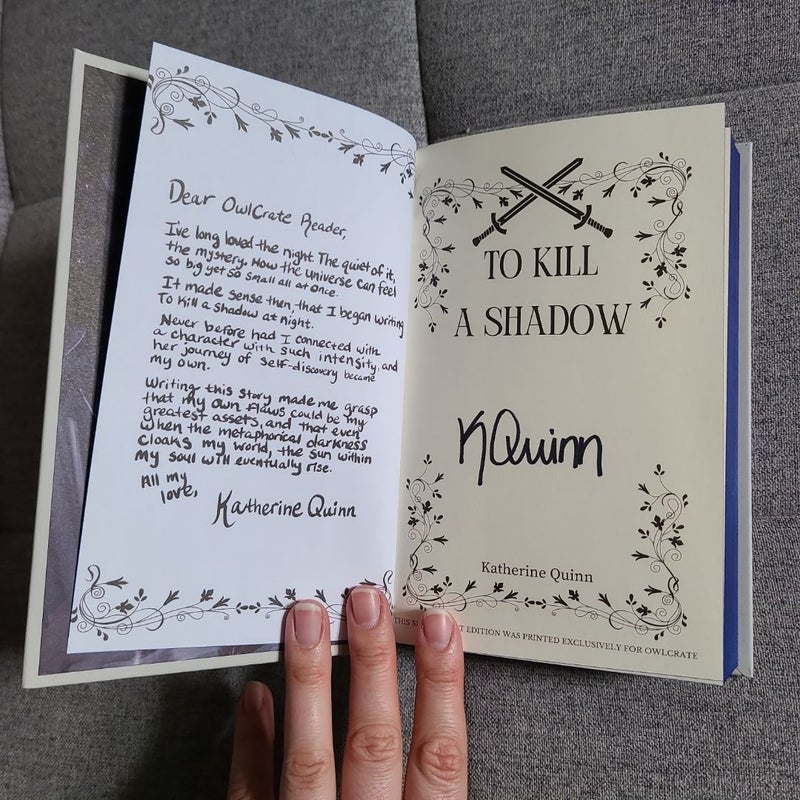 Dear OwlCrate Reader,
I've long loved the night. The quiet of it,
the mystery. How the universe can feel
so big yet so small all at once.
It made sense then, that I began writing
To Kill a Shadow at night.
Never before had I connected with
a character with such intensity, and
her journey of self-discovery became
my own.
Writing this story made me grasp
that my own flaws could be my
greatest assets, and that even
when the metaphorical darkness
cloaks my world, the sun within
my soul will eventually rise.
All my
love,
Katherine Quinn
TO KILL
A SHADOW
KQuinn
Katherine Quinn
THIS EDITION WAS PRINTED EXCLUSIVELY FOR OWLCRATE